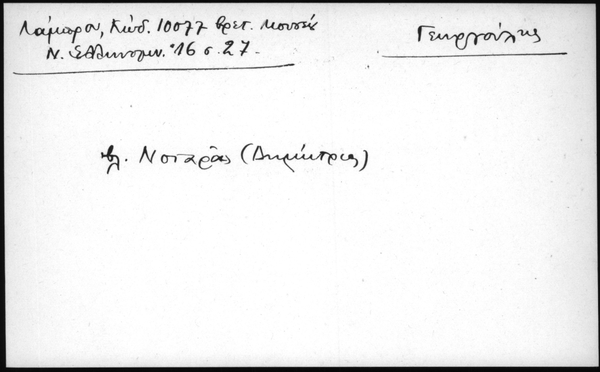 Λάμπρου, Κώδ. 10077 Βρετ. Μουσείου
Ν. Ἑλληνομν. 16 σ. 27.
Γεωργούλης
βλ. Νοταρᾶς (Δημήτριος)